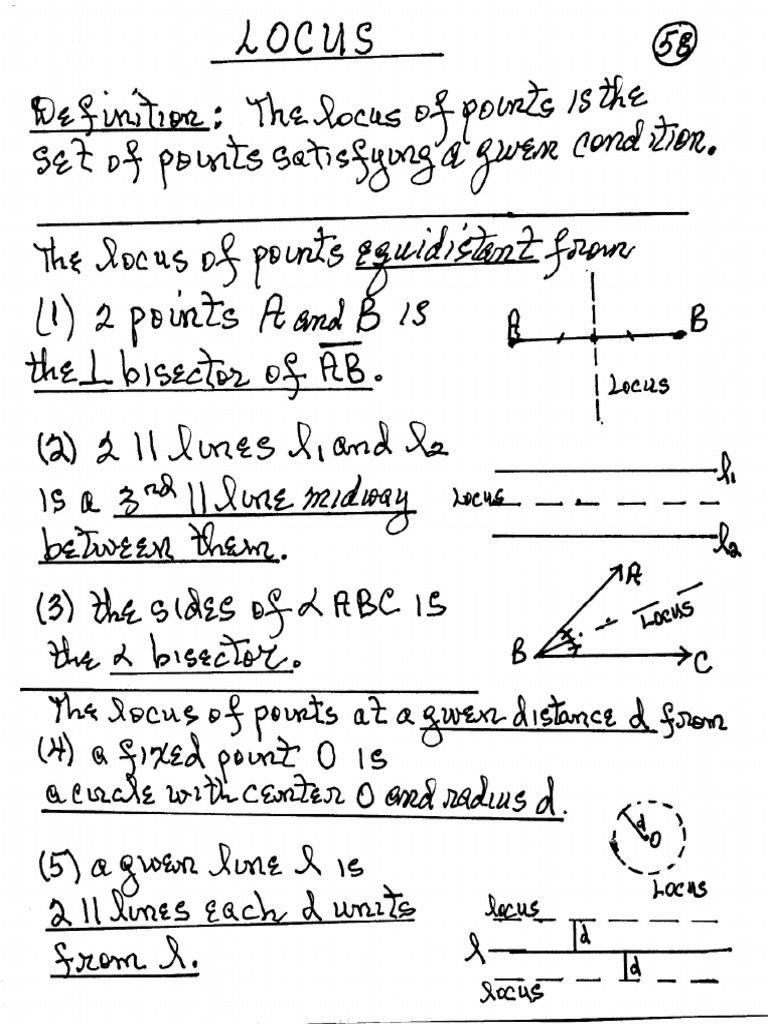 LOCUS
58
Definition: The locus of points is the
set of points satisfying a given condition.
The locus of points equidistant from
(1) 2 points A and B is
the ⊥ bisector of A̅B̅.
A
B
Locus
(2) 2 || lines l₁ and l₂
is a 3rd || line midway
between them.
l₁
Locus
l₂
(3) the sides of ∠ABC is
the ∠ bisector.
A
Locus
B
C
The locus of points at a given distance d from
(4) a fixed point O is
a circle with center O and radius d.
d
O
Locus
(5) a given line l is
2 || lines each d units
from l.
locus
d
l
d
locus